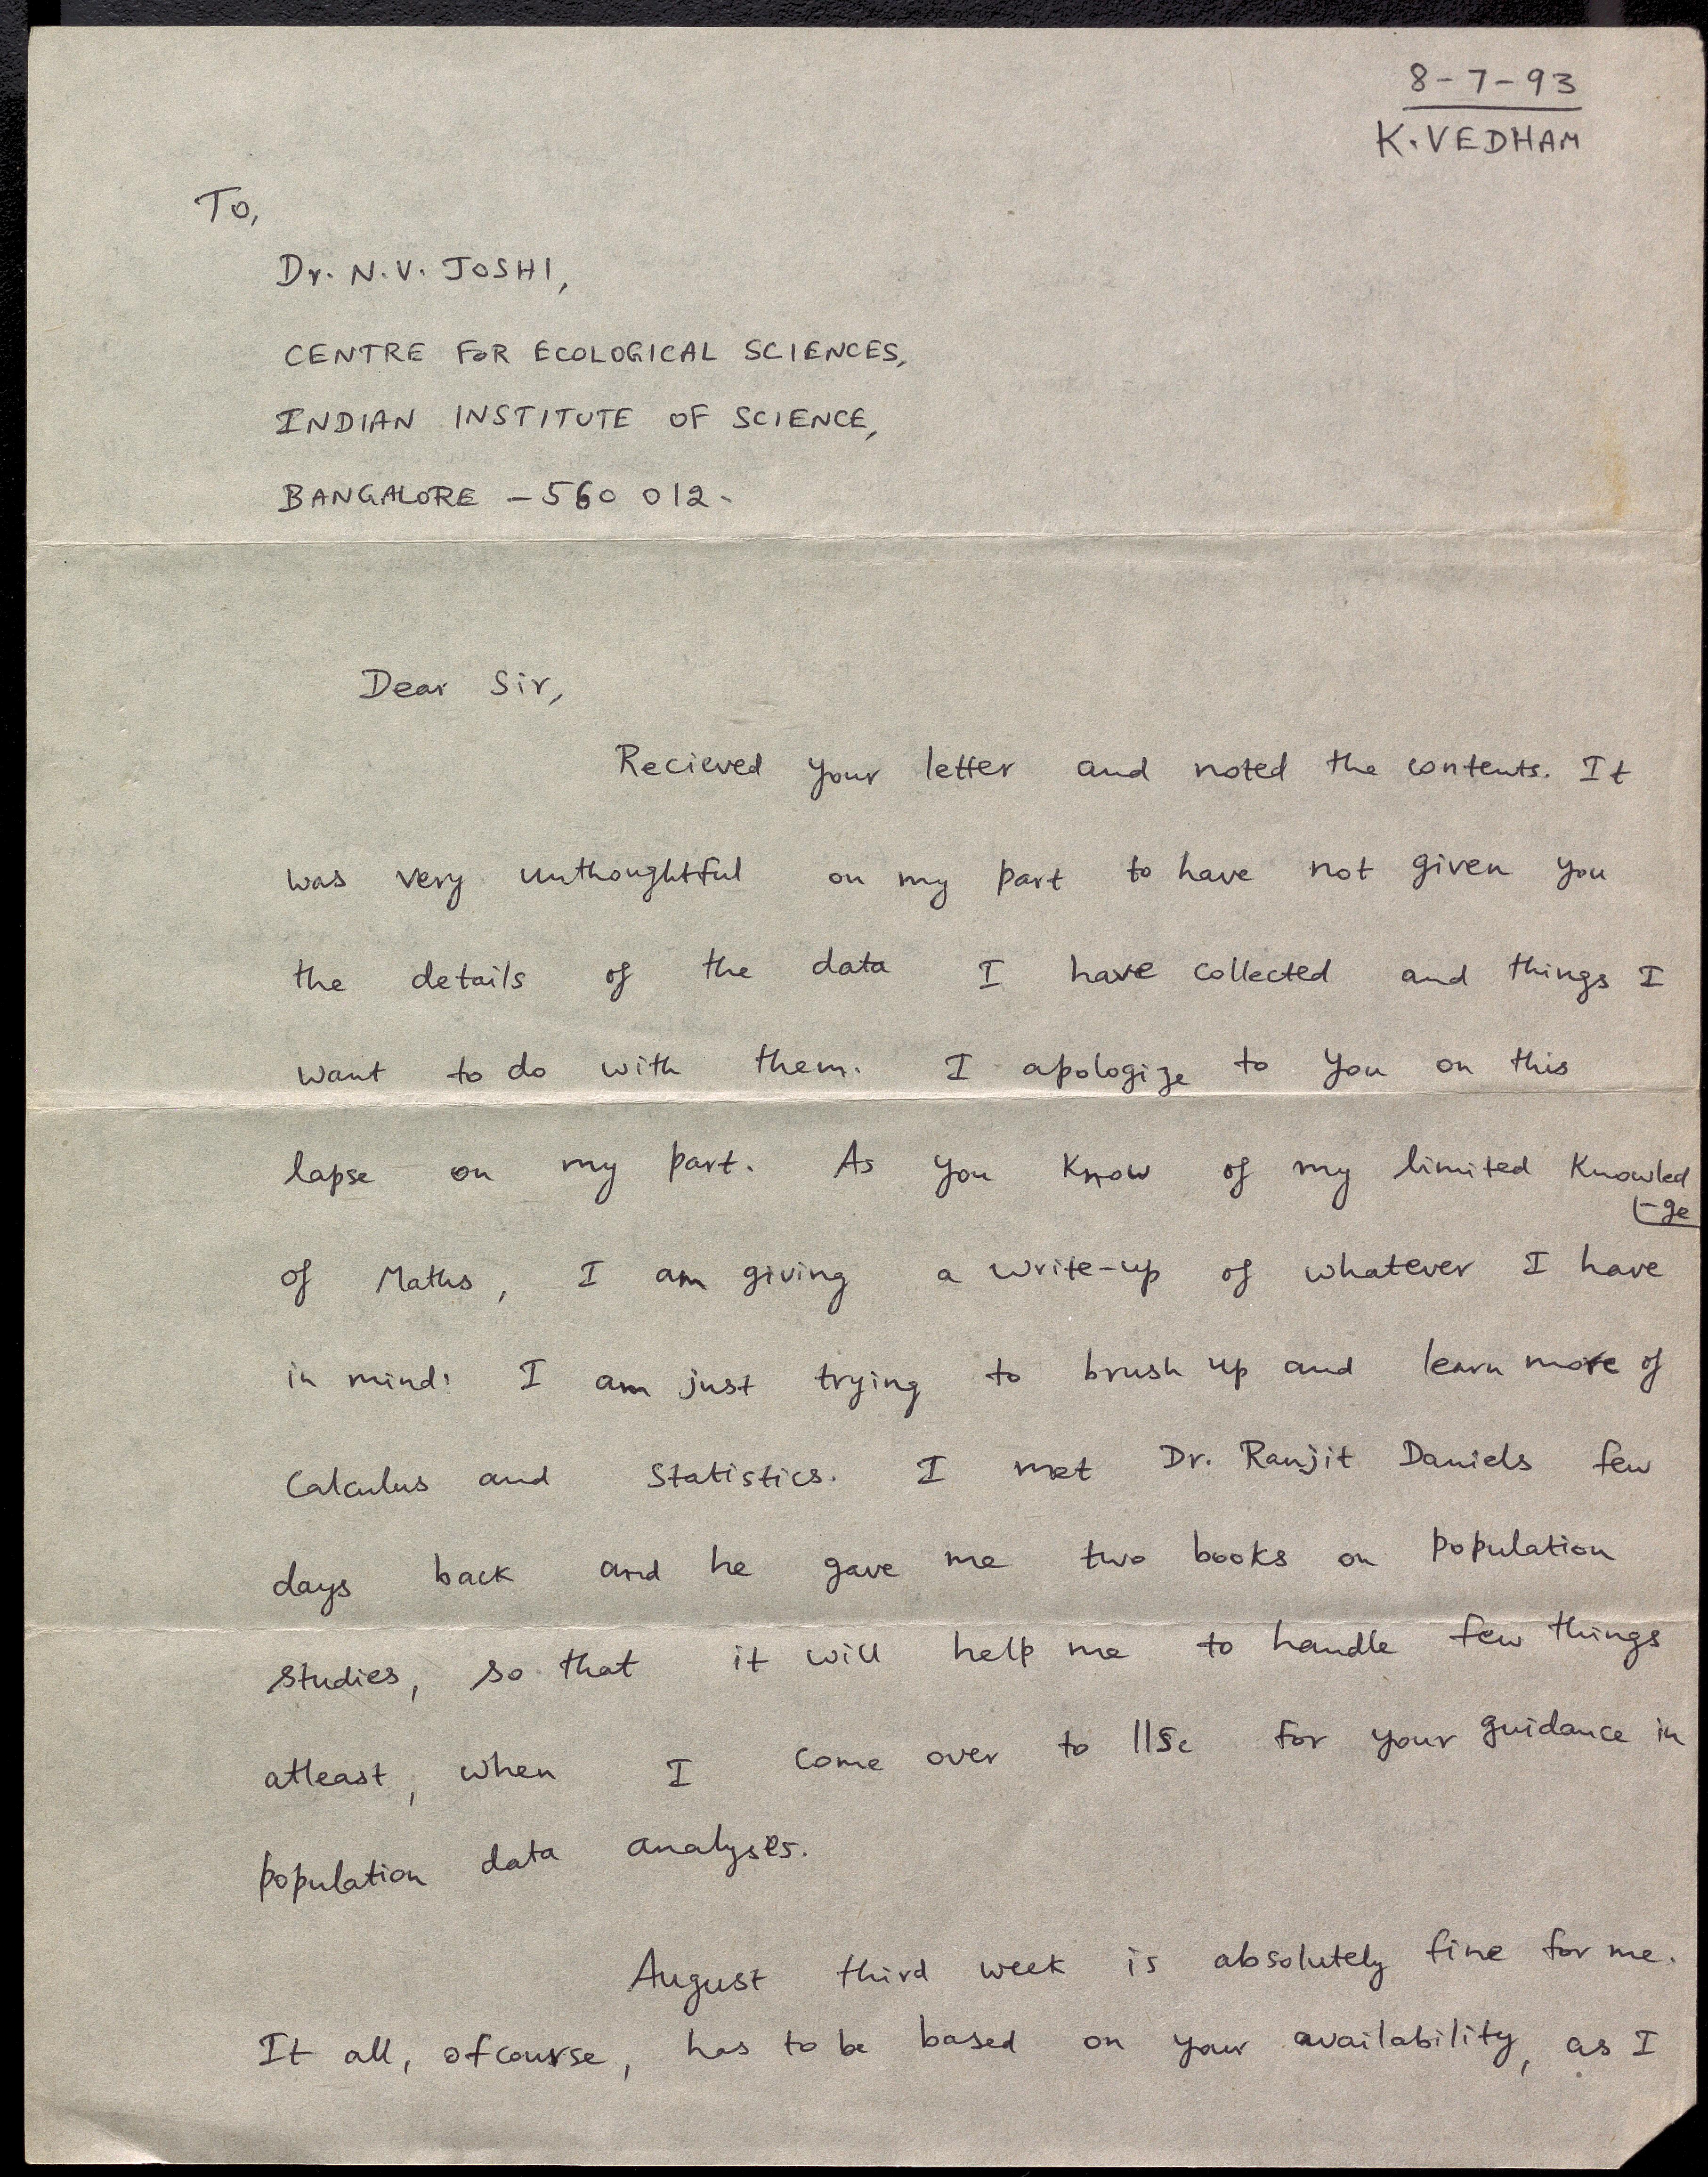 8-7-93
K. VEDHAM
To,
Dr. N.V. JOSHI,
CENTRE FOR ECOLOGICAL SCIENCES,
INDIAN INSTITUTE OF SCIENCE,
BANGALORE - 560 012.
Dear Sir,
Recieved your letter and noted the contents. It
was very unthoughtful on my part to have not given you
the details of the data I have collected and things I
want to do with them. I apologize to you on this
lapse on my part. As you know of my limited Knowled
-ge
of Maths, I am giving a write-up of whatever I have
in mind. I am just trying to brush up and learn more of
Calculus and Statistics. I met Dr. Ranjit Daniels few
days back and he gave me two books on population
studies, so that it will help me to handle few things
atleast, when I come over to IISc for your guidance in
population data analyses.
August third week is absolutely fine for me.
It all, ofcourse, has to be based on your availability, as I